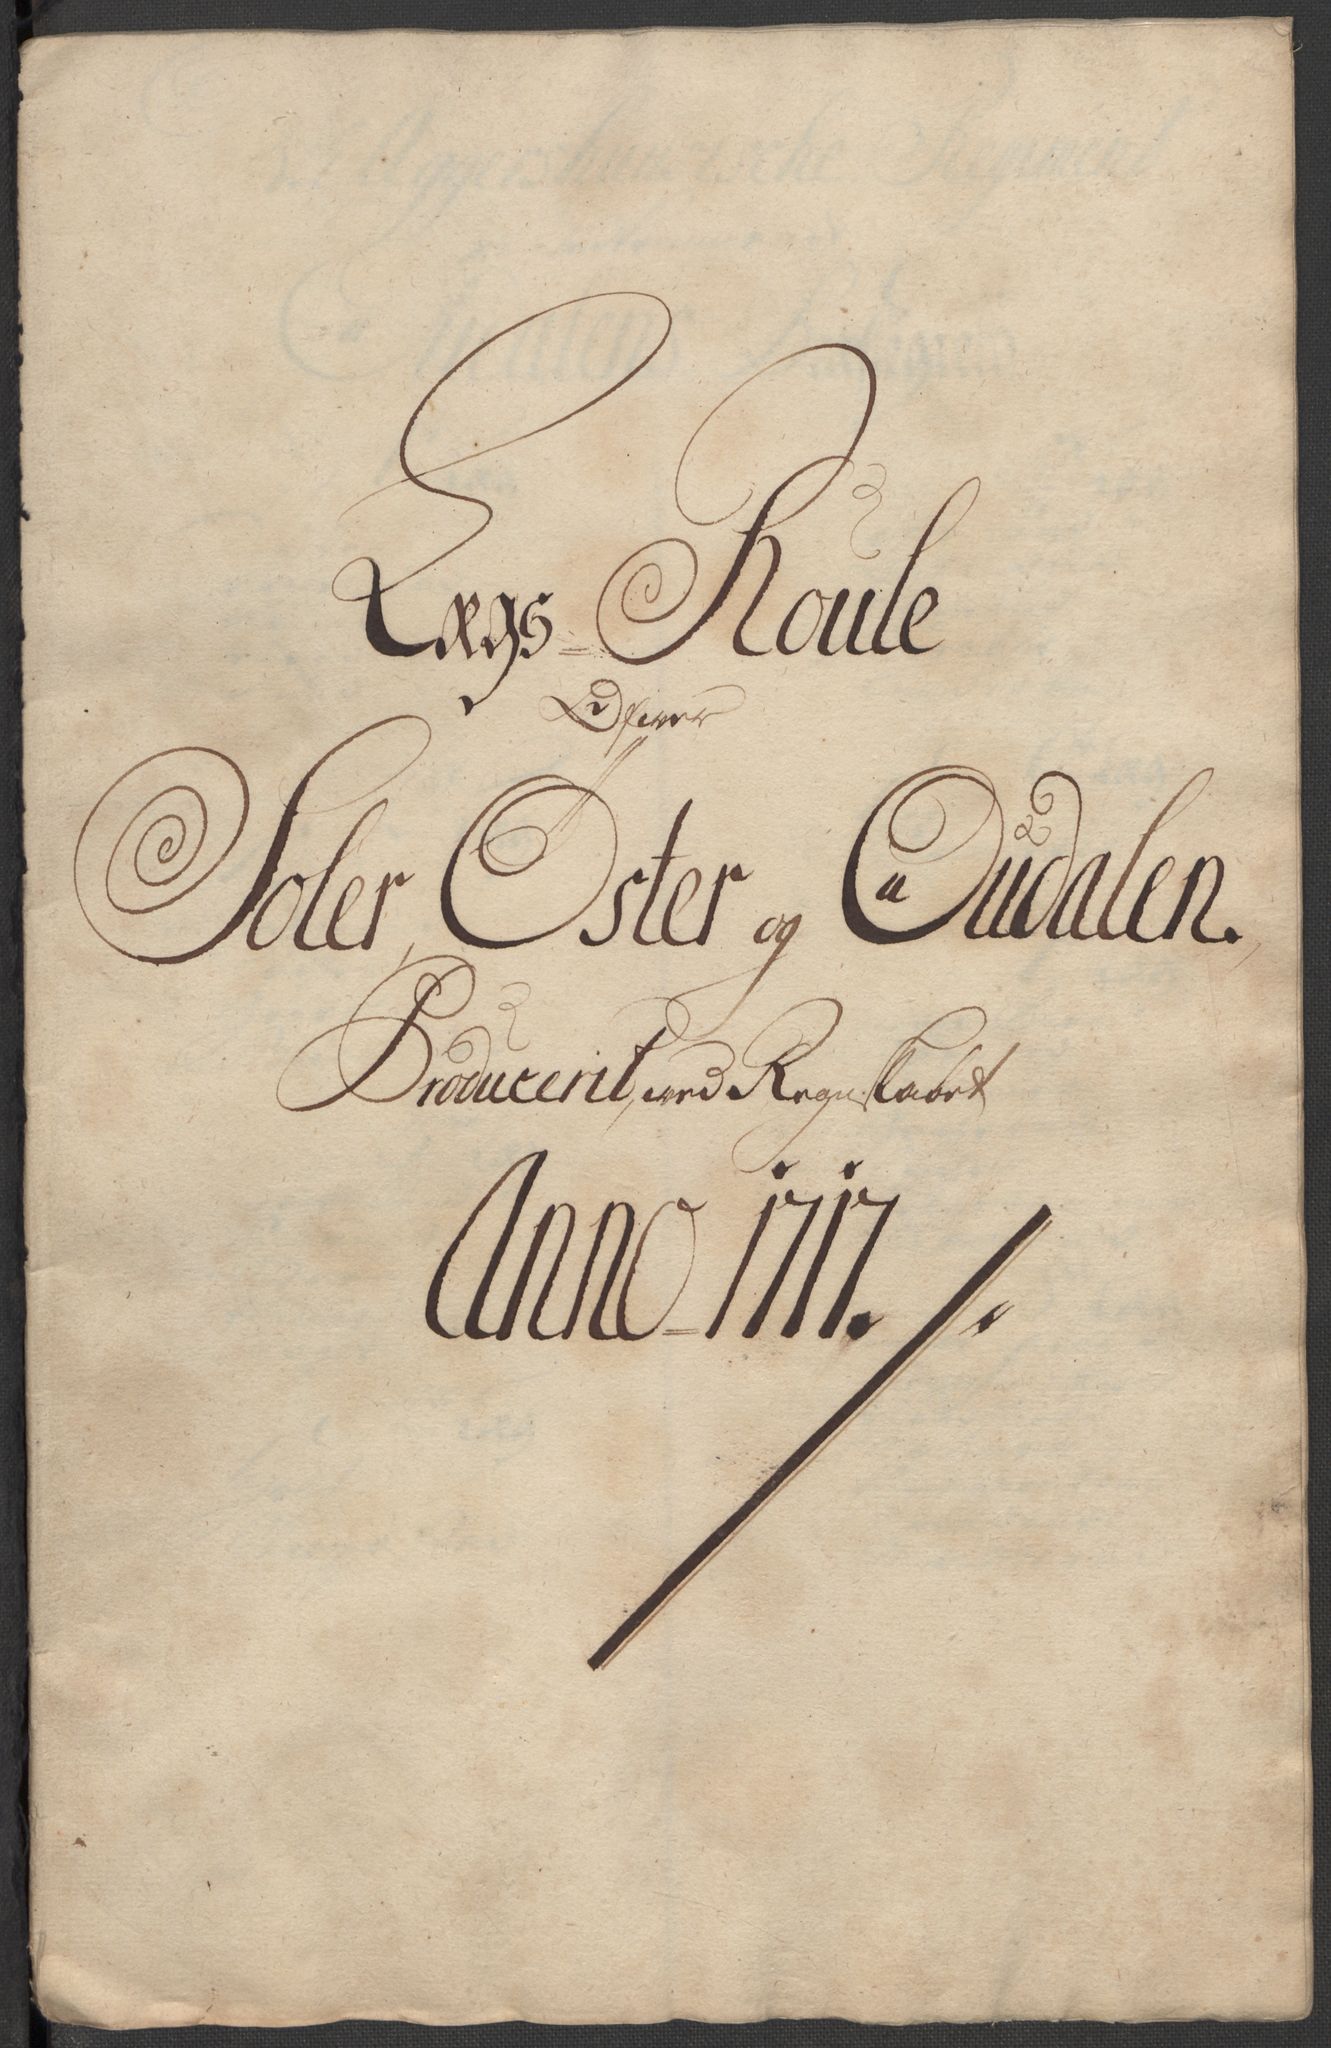 Lægs-Roule
Ofwer
Soler, Öster og Oudalen.
Producerit, wed Regnskabet
Anno-1717.